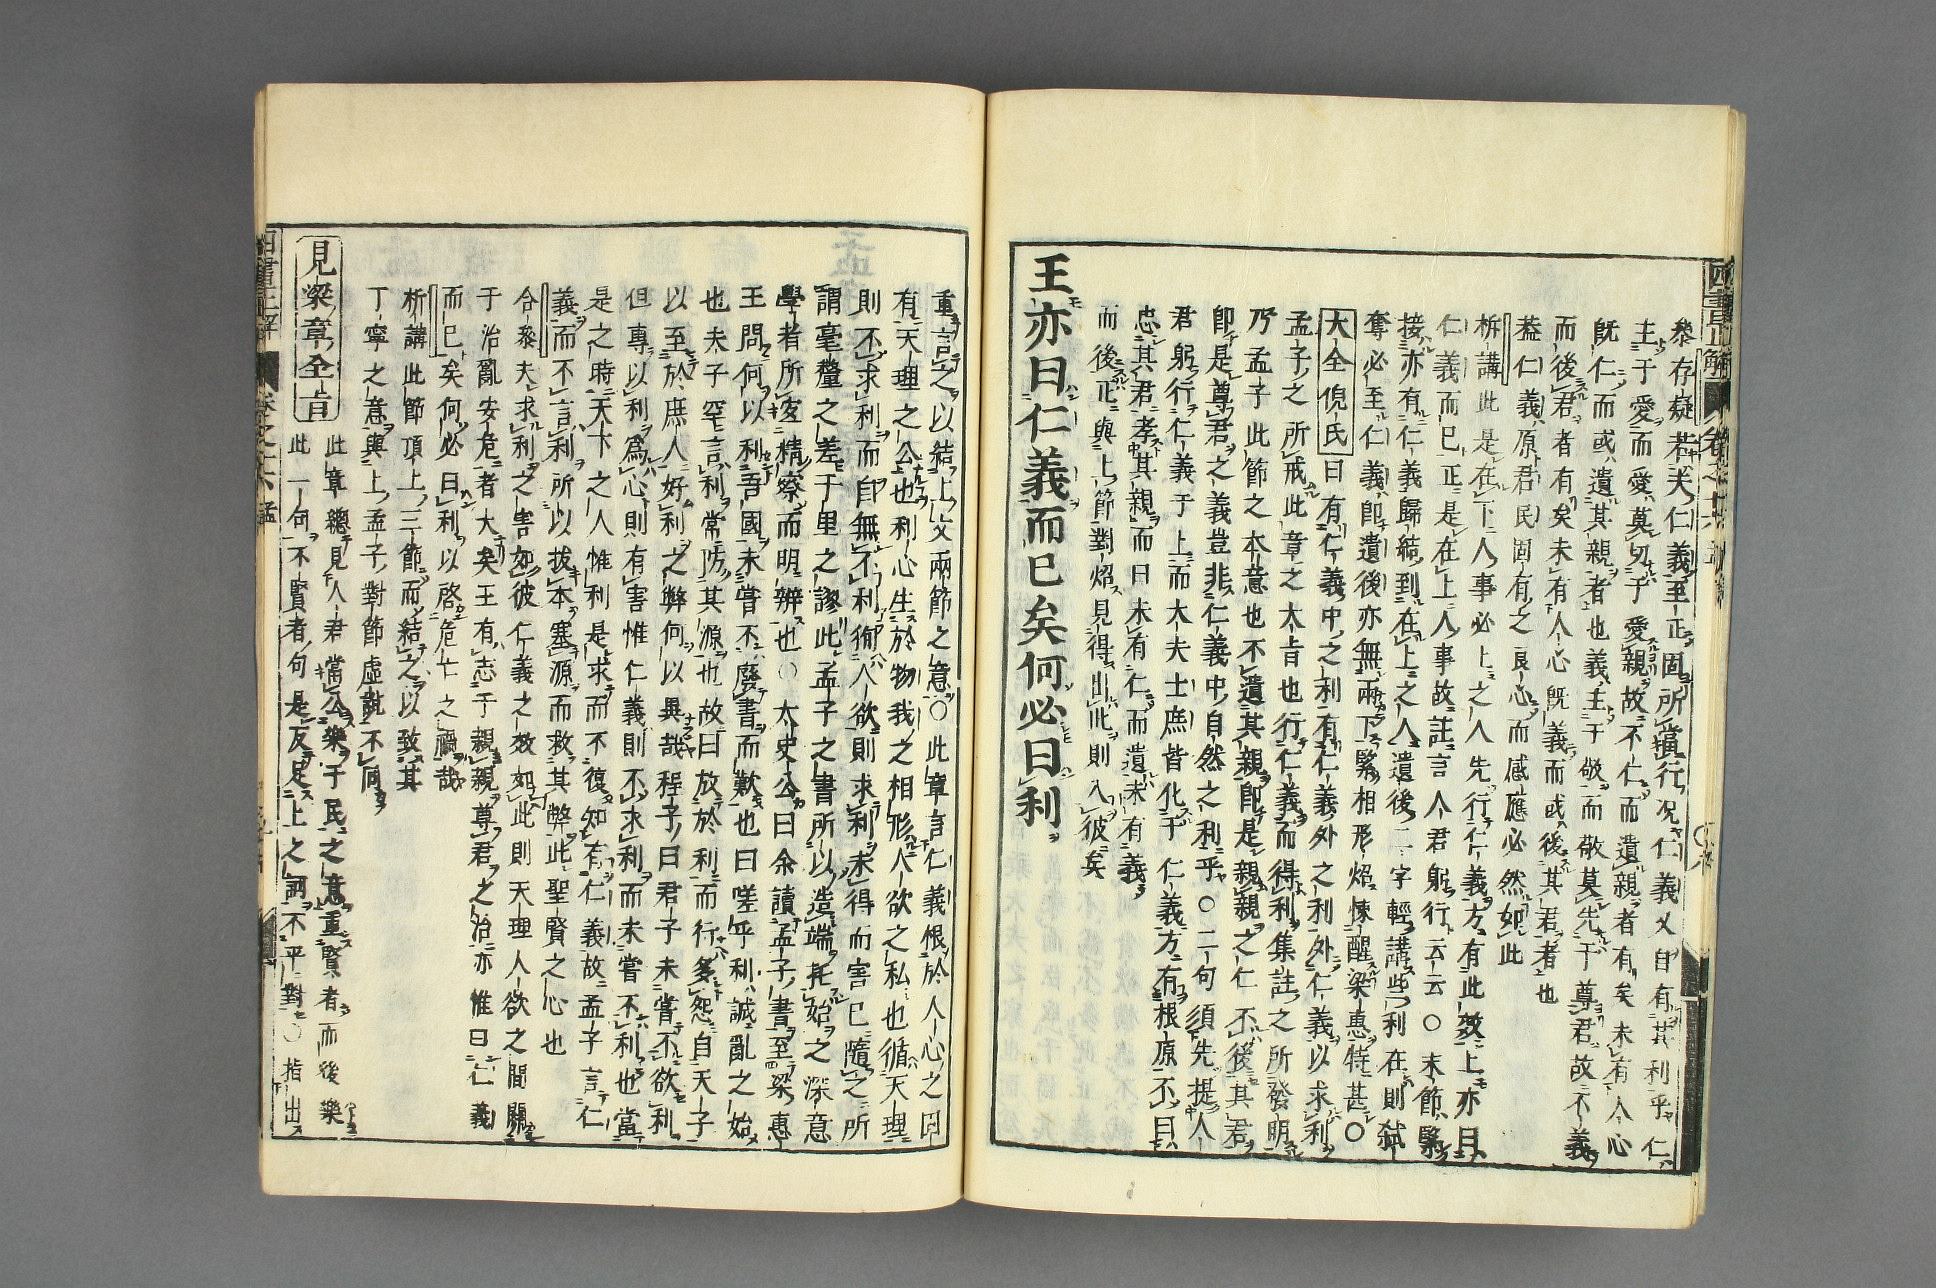 參存疑若夫仁義至正固所當行況仁義又自有其利乎仁
主于愛而愛莫切于愛親故不仁而遺親者有矣未有人心
既仁而或遺其親者也義主于敬而敬莫先于尊君故不義
而後君者有矣未有人心既義而或後其君者也
蓋仁義原君民固有之良心而感應必然如此
析講此是在下人事必上之人先行仁義方有此效上亦曰
仁義而已正是在上人事故註言人君躬行云云○末節緊
接亦有仁義歸結到在上之人遺後二字輕講些利在則弒
奪必至仁義即遺後亦無兩下緊相形炤悚醒梁惠特甚○
大全倪氏曰有仁義中之利有仁義外之利外仁義以求利
孟子之所戒此章之大旨也行仁義而得利集註之所發明
乃孟子此節之本意也不遺其親即是親親之仁不後其君
即是尊君之義豈非仁義中自然之利乎○二句須先提人
君躬行仁義于上而大夫士庶皆化于仁義方有根原不曰
忠其君孝其親而曰未有仁而遺未有義
而後正與上節對炤見得出此則入彼矣
王亦曰仁義而已矣何必曰利
重言之以結上文兩節之意○此章言仁義根於人心之固
有天理之公也利心生於物我之相形人欲之私也循天理
則不求利而自無不利徇人欲則求利未得而害已隨之所
謂毫釐之差千里之謬此孟子之書所以造端託始之深意
學者所宜精察而明辨也○太史公曰余讀孟子書至梁惠
王問何以利吾國未嘗不廢書而歎也曰嗟乎利誠亂之始
也夫子罕言利常防其源也故曰放於利而行多怨自天子
以至於庶人好利之弊何以異哉程子曰君子未嘗不欲利
但專以利為心則有害惟仁義則不求利而未嘗不利也當
是之時天下之人惟利是求而不復知有仁義故孟子言仁
義而不言利所以拔本塞源而救其弊此聖賢之心也
合參夫求利之害如彼仁義之效如此則天理人欲之間關
于治亂安危者大矣王有志于親親尊君之治亦惟曰仁義
而已矣何必曰利以啓危亡之禍哉
析講此節頂上三節而結之以致其
丁寧之意與上孟子對節虛說不同
見梁章全旨
此章總見人君當公樂于民之意重賢者而後樂
此一句不賢者句是反足上之詞不平對○指出